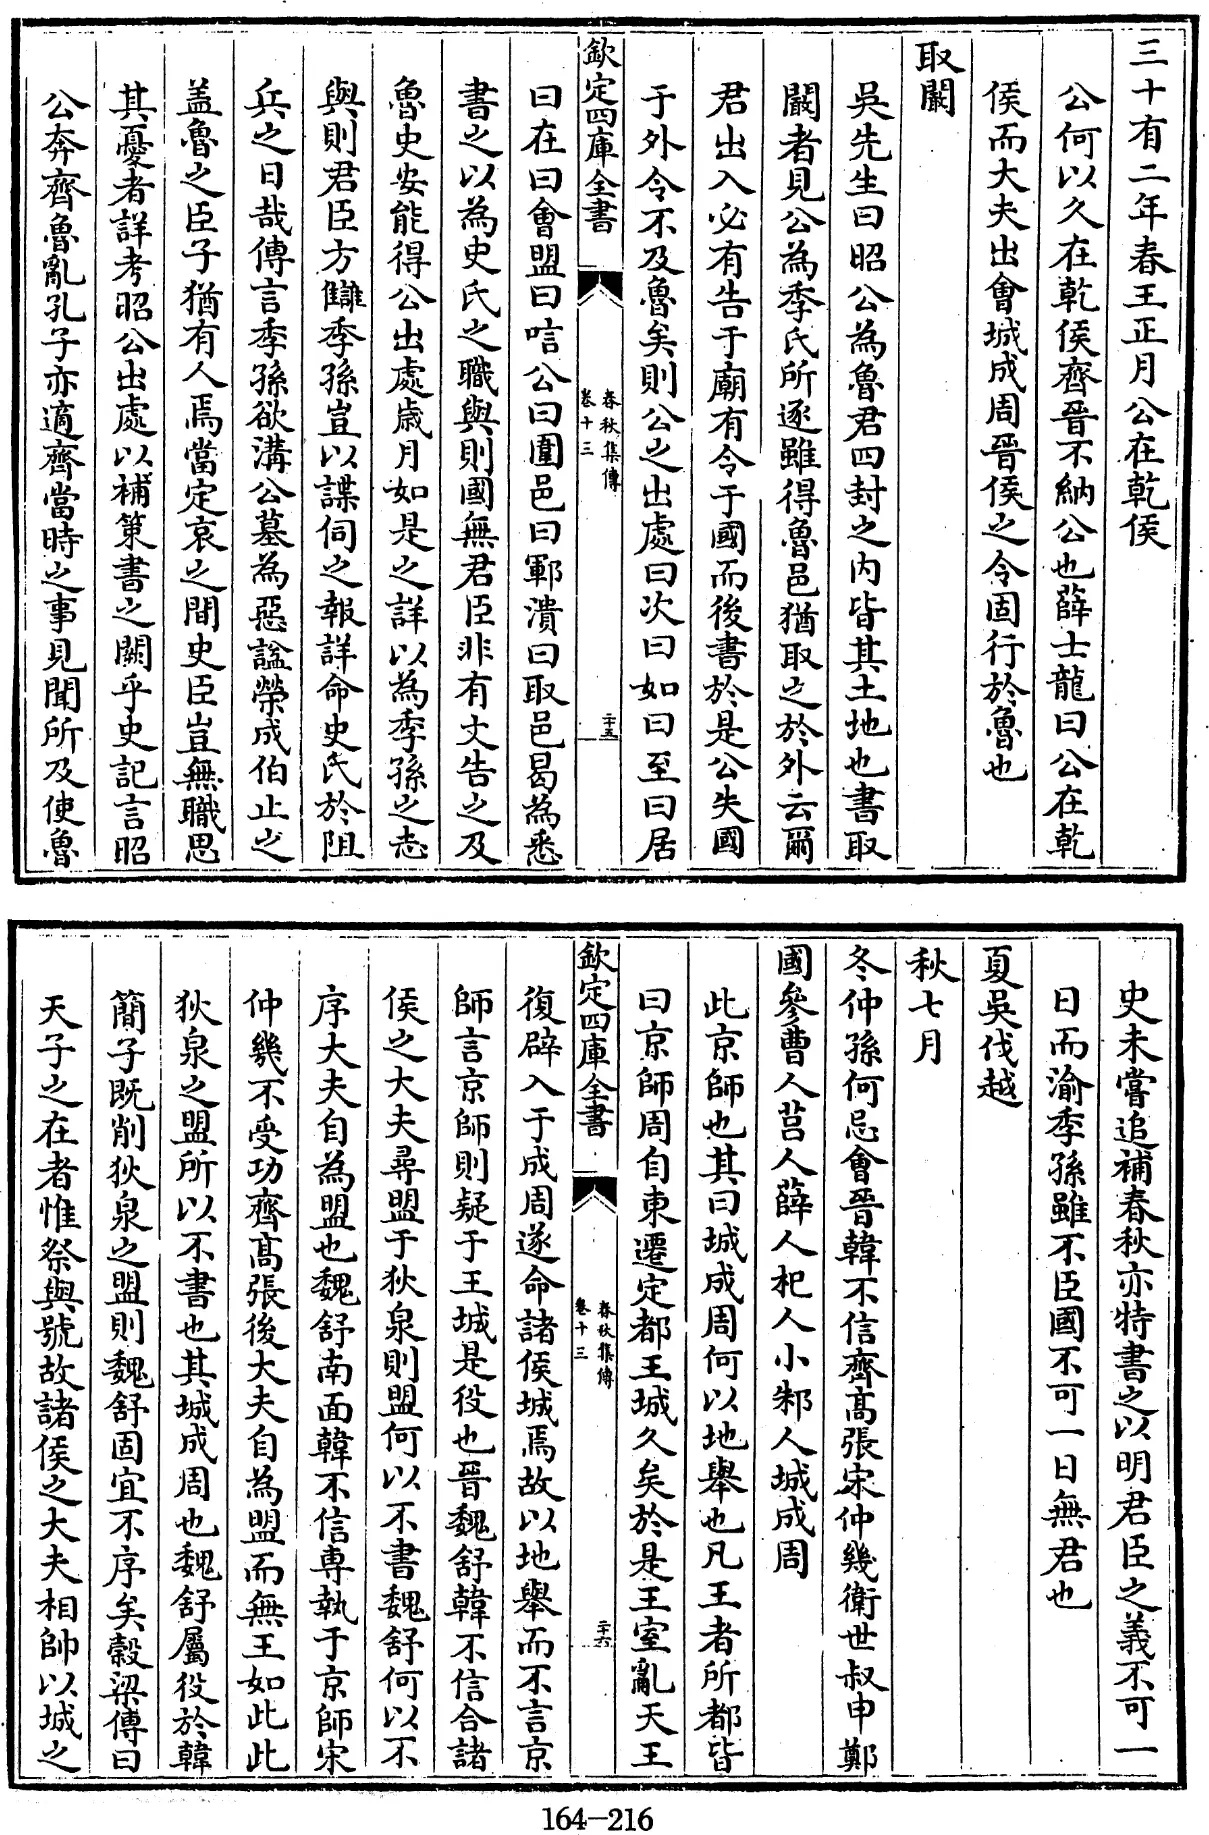 三十有二年春王正月公在乾侯
公何以久在乾侯齊晉不納公也薛士龍曰公在乾
侯而大夫出會城成周晉侯之令固行於魯也
取闞
吳先生曰昭公為魯君四封之内皆其土地也書取
闞者見公為季氏所逐雖得魯邑猶取之於外云爾
君出入必有告于廟有令于國而後書於是公失國
于外令不及魯矣則公之出處曰次曰如曰至曰居
欽定四庫全書
春秋集傳
卷十三
二十五
曰在曰會盟曰唁公曰圍邑曰鄆潰曰取邑曷為悉
書之以為史氏之職與則國無君臣非有文告之及
魯史安能得公出處歳月如是之詳以為季孫之志
與則君臣方讎季孫豈以諜伺之報詳命史氏於阻
兵之日哉傳言季孫欲溝公墓為惡諡榮成伯止之
盖魯之臣子猶有人焉當定哀之間史臣豈無職思
其憂者詳考昭公出處以補策書之闕乎史記言昭
公奔齊魯亂孔子亦適齊當時之事見聞所及使魯
史未嘗追補春秋亦特書之以明君臣之義不可一
日而渝季孫雖不臣國不可一日無君也
夏吳伐越
秋七月
冬仲孫何忌會晉韓不信齊髙張宋仲幾衛世叔申鄭
國參曹人莒人薛人杞人小邾人城成周
此京師也其曰城成周何以地舉也凡王者所都皆
曰京師周自東遷定都王城久矣於是王室亂天王
欽定四庫全書
春秋集傳
卷十三
二十六
復辟入于成周遂命諸侯城焉故以地舉而不言京
師言京師則疑于王城是役也晉魏舒韓不信合諸
侯之大夫尋盟于狄泉則盟何以不書魏舒何以不
序大夫自為盟也魏舒南面韓不信専執于京師宋
仲幾不受功齊髙張後大夫自為盟而無王如此此
狄泉之盟所以不書也其城成周也魏舒屬役於韓
簡子既削狄泉之盟則魏舒固宜不序矣穀梁傳曰
天子之在者惟祭與號故諸侯之大夫相帥以城之
164-216